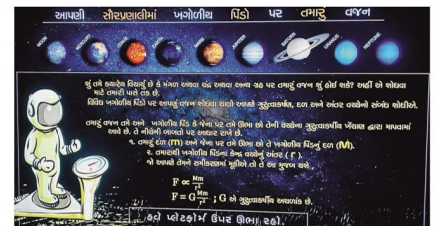 આપણી સૌરપ્રણાલીમાં ખગોળીય પિંડો પર તમારું વજન
MOON
MERCURY
JUPITER
SATURN
URANUS
NEPTUNE
શું તમે ક્યારેય વિચાર્યું છે કે મંગળ અથવા ચંદ્ર અથવા અન્ય ગ્રહ પર તમારું વજન શું હોઈ શકે? અહીં એ શોધવા
માટે તમારી પાસે તક છે.
વિવિધ ખગોળીય પિંડો પર આપણું વજન શોધવા ચાલો આપણે ગુરુત્વાકર્ષણ, દળ અને અંતર વચ્ચેનો સંબંધ શોધીએ.
તમારું વજન તમે અને ખગોળીય પિંડ કે જેના પર તમે ઊભા છો તેની વચ્ચેના ગુરુત્વાકર્ષીય ખેંચાણ દ્વારા માપવામાં
આવે છે. તે નીચેની બાબતો પર આધાર રાખે છે.
૧. તમારું દળ (m) અને જેના પર તમે ઊભા છો તે ખગોળીય પિંડનું દળ (M).
૨. તમારાથી ખગોળીય પિંડના કેન્દ્ર વચ્ચેનું અંતર (r).
જો આપણે તેમને સમીકરણમાં મૂકીએ તો તે આ મુજબ થશે
F ∝ Mm/r²
F = G Mm/r² ; G એ ગુરુત્વાકર્ષીય અચળાંક છે.
હવે પ્લેટફોર્મ ઉપર ઊભા રહો.